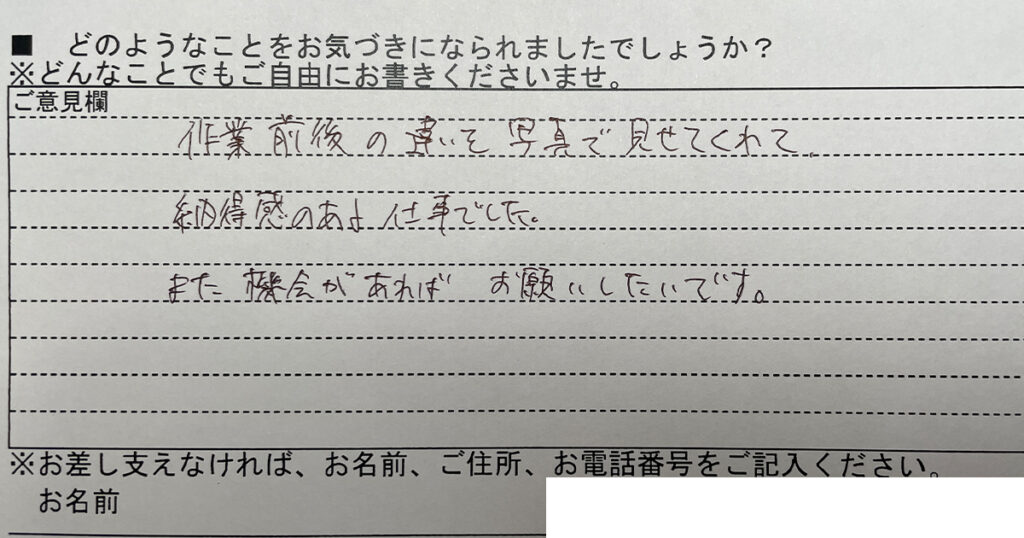 ■ どのようなことをお気づきになられましたでしょうか？
※どんなことでもご自由にお書きくださいませ。
ご意見欄
作業前後の違いを写真で見せてくれて、
納得感のある仕事でした。
また機会があれば お願いしたいです。
※お差し支えなければ、お名前、ご住所、お電話番号をご記入ください。
お名前